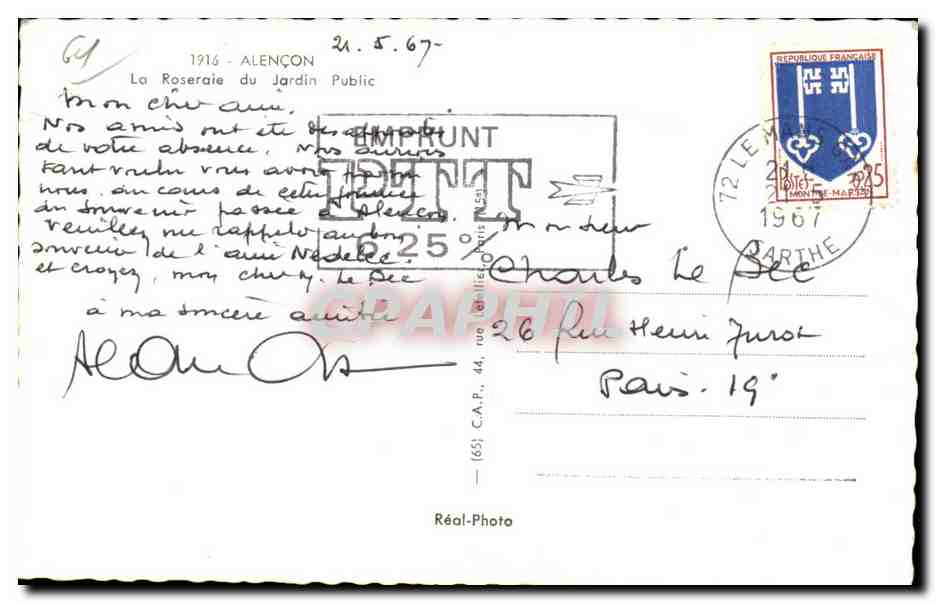 21.5.67-
64
1916 - ALENÇON
La Roseraie du Jardin Public
Mon cher ami,
Nos amis ont été
de votre absence. Nous aurions
tant voulu vous avoir parmi
nous, au cours de cette journée
du souvenir passée à Alençon.
Veuillez me rappeler au bon
souvenir de l'ami Nédelec.
et croyez, mon cher Le Sec
à ma sincère amitié
EMPRUNT
PTT
6,25%
REPUBLIQUE FRANÇAISE
POSTES 0,25
MONT-DE-MARSAN
72 LE MANS
1967
SARTHE
Monsieur
Charles Le Sec
26 Rue Henri Turot
Paris. 19e
— (65) C.A.P., 44, rue Letellier, Paris (15e)
Réal-Photo
CPAPHIL